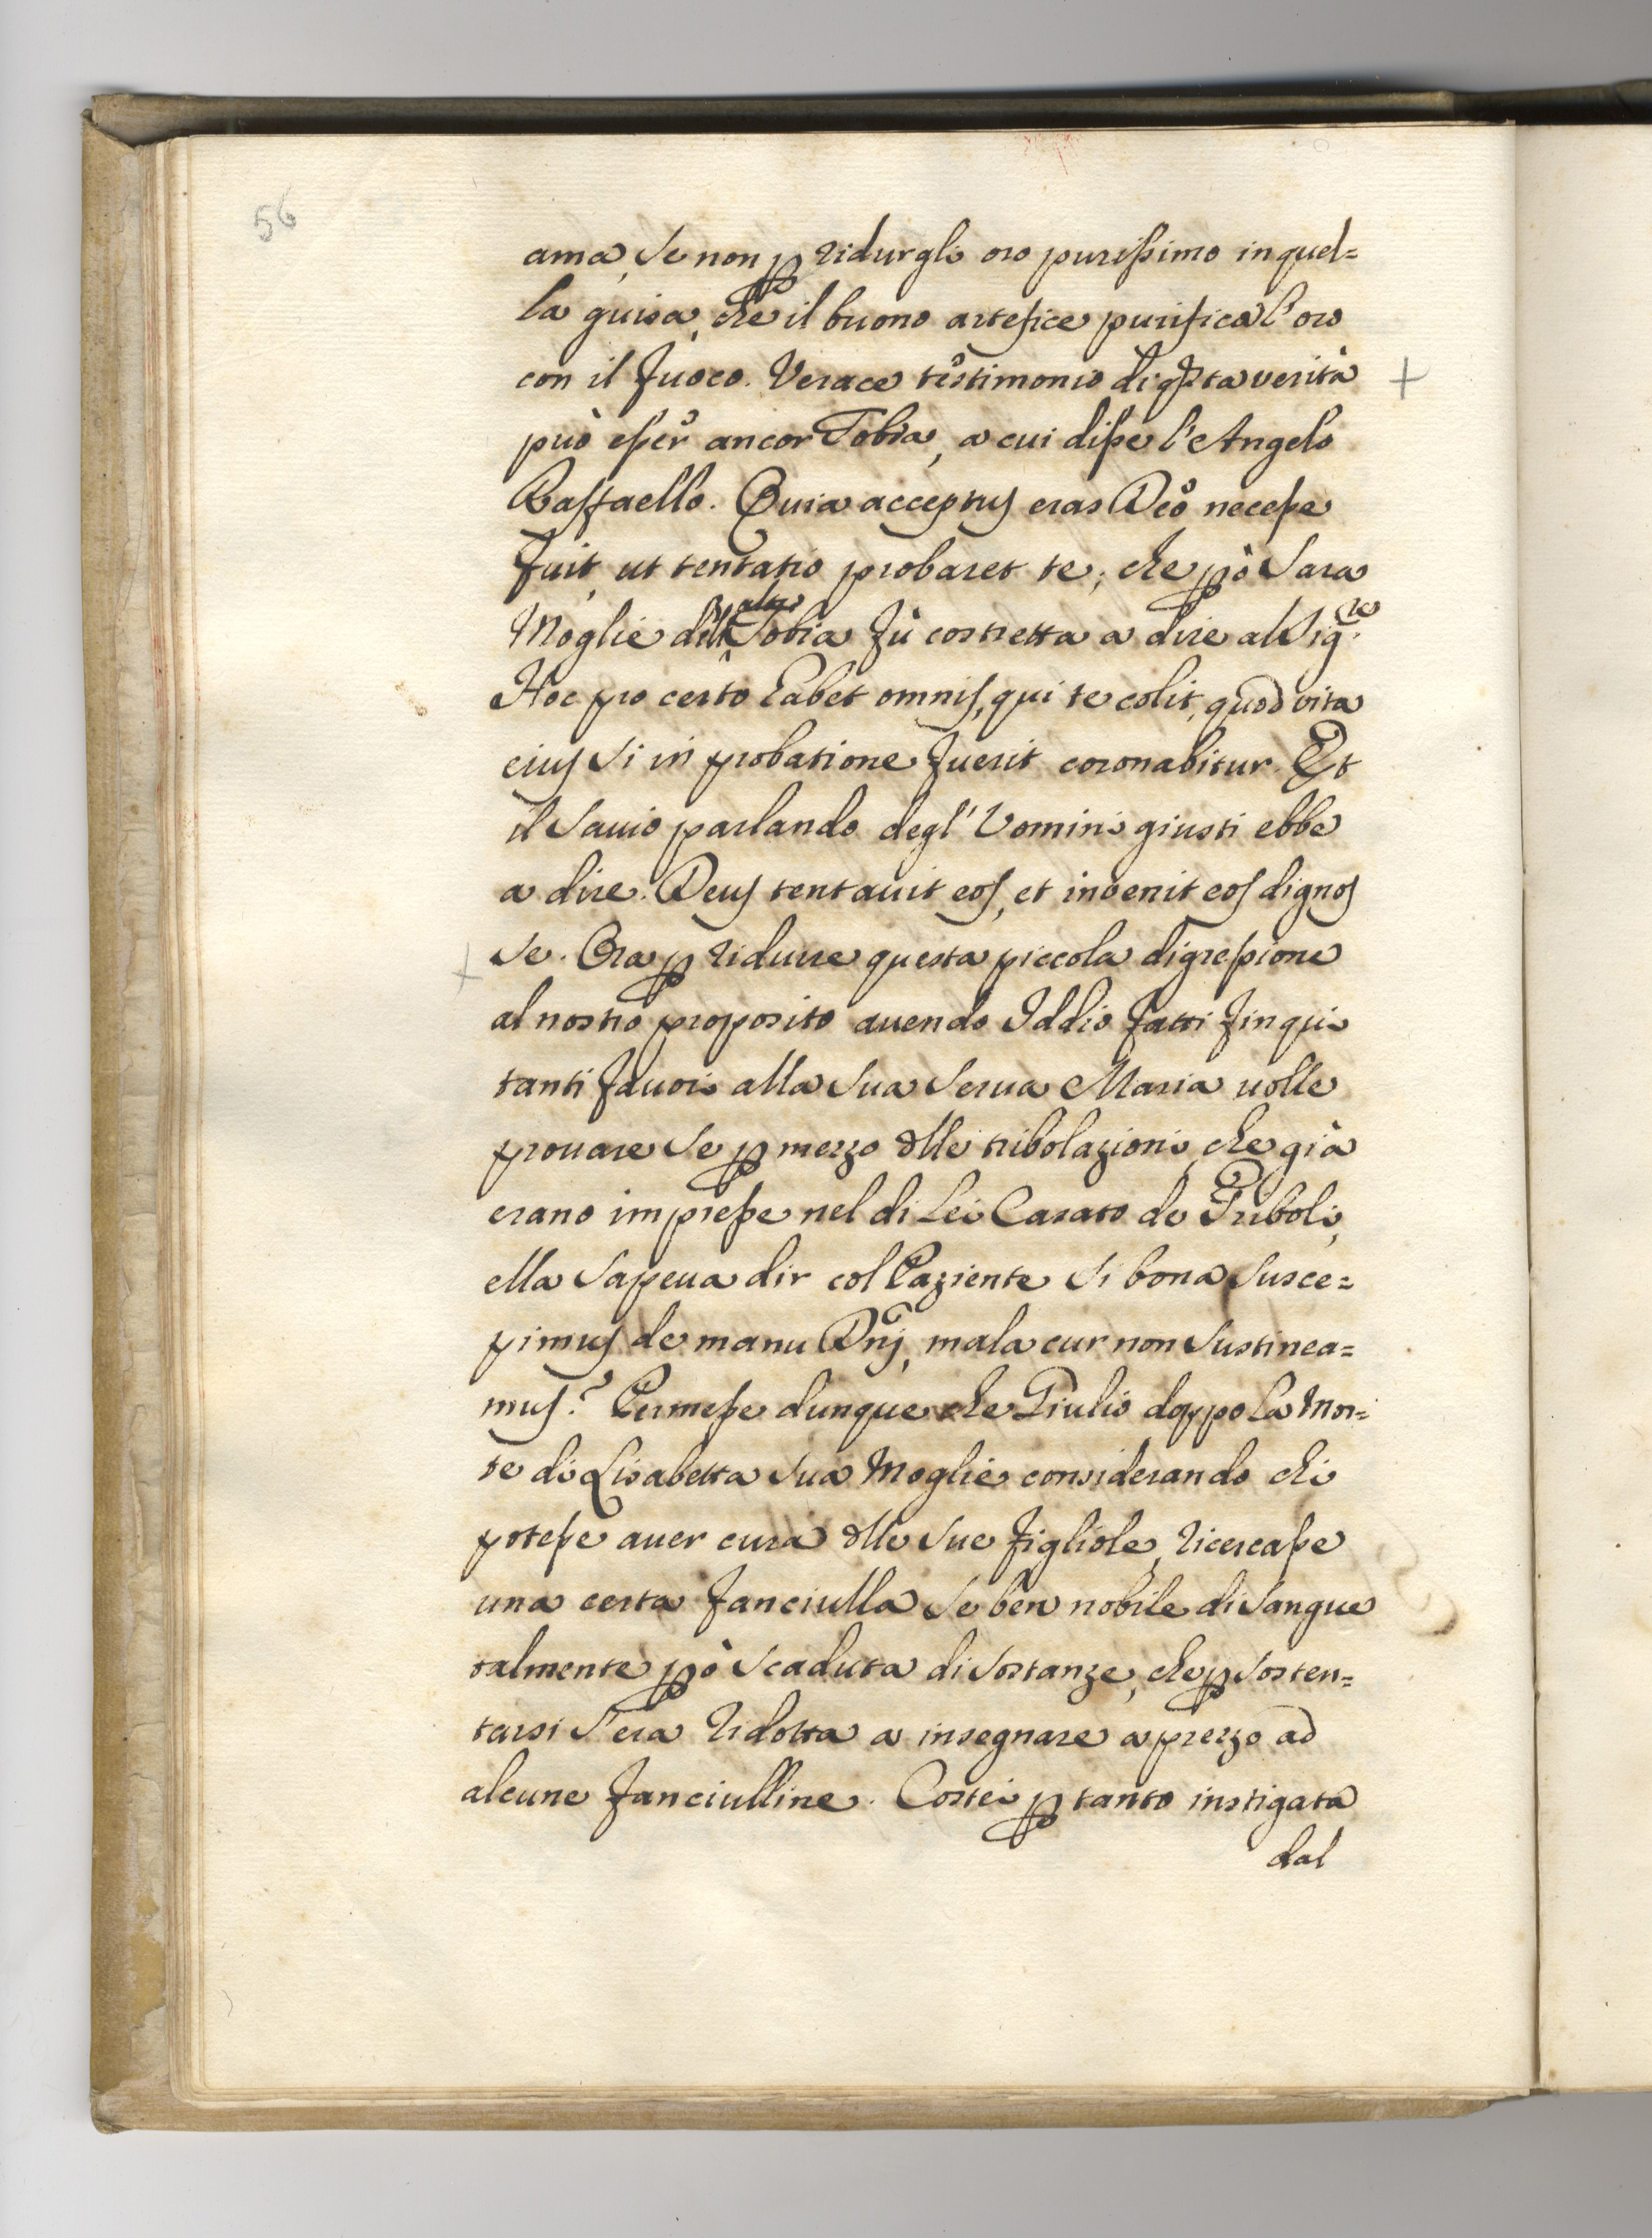 56
ama, se non p ridurgli oro purissimo in quel=
la guisa, che il buono artefice purifica l'oro
con il fuoco. Verace testimonio di qsta verità +
può esser ancor Tobia, a cui disse l'Angelo
Raffaello. Quia acceptus eras Deo necesse
fuit, ut tentatio probaret te; che pò Sara
altro
Moglie dell Tobia fù costretta a dire al Sigre.
Hoc pro certo habet omnis, qui te colit, quod vita
eius si in probatione fuerit coronabitur. Et
il Savio parlando degl'Uomini giusti ebbe
a dire. Deus tentavit eos, et invenit eos dignos
+ se. Ora p ridurre questa piccola digressione
al nostro proposito avendo Iddio fatti fin qui
tanti favori alla sua serva Maria volle
provare se p mezzo dlle tribolazioni, che già
erano impresse nel di Lei Casato de Triboli,
ella sapeva dir col Paziente si bona susce=
pimus de manu Dnj, mala cur non sustinea=
mus? Permesse dunque che Giulio doppo la Mor=
te di Lisabetta sua Moglie considerando chi
potesse aver cura dlle sue figliole, ricercasse
una certa fanciulla se ben nobile di sangue
talmente pò scaduta di sostanze, che p sosten=
tarsi s'era ridotta a insegnare a prezzo ad
alcune fanciulline. Costei p tanto instigata
dal